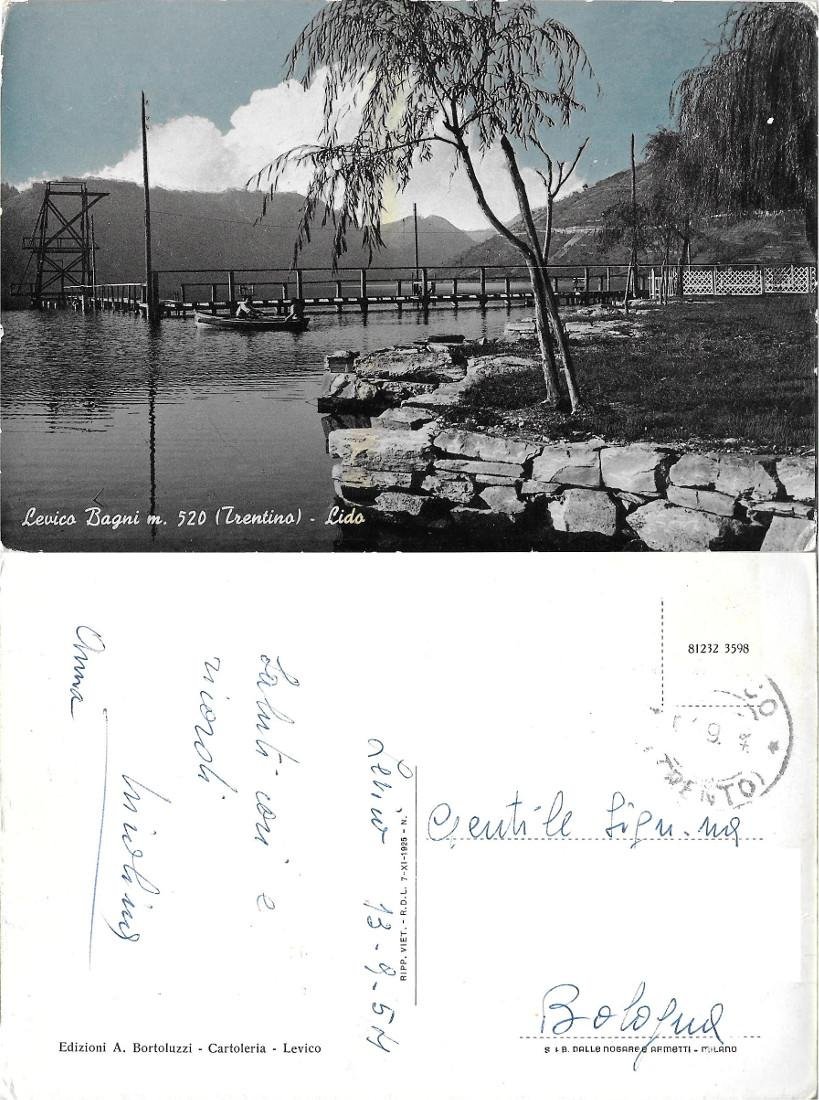 Levico Bagni m. 520 (Trentino) - Lido
81232 3598
TRENTO
Levico 13-9-54
Saluti cari e
ricordi
Anna
RIPP. VIET. - R.D.L. 7-XI-1925 - N.
Gentile Sign.na
Bologna
Edizioni A. Bortoluzzi - Cartoleria - Levico
S.I.B. DALLE NOGARE E ARMETTI - MILANO